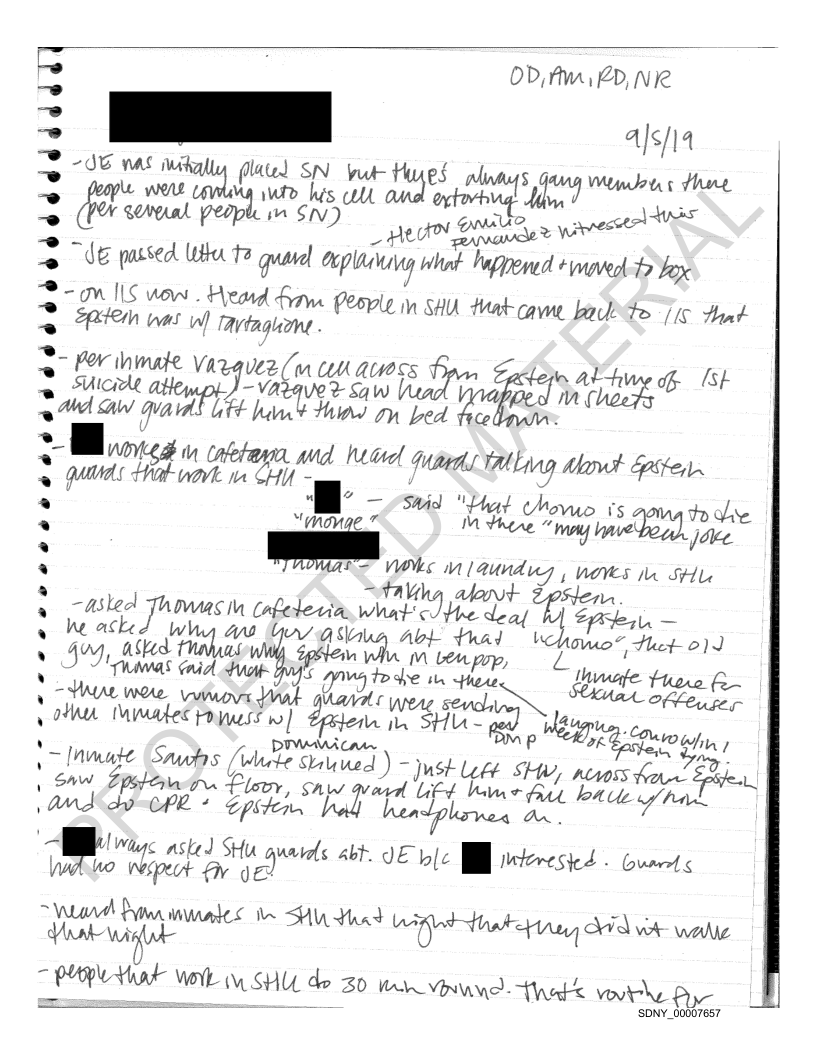 OD, AM, RD, NR
9/5/19
- JE was initially placed 5N but there's always gang members there
people were coming into his cell and extorting him
(per several people in 5N)
- Hector Emilio
Fernandez witnessed this
- JE passed letter to guard explaining what happened + moved to box
- on 11S now. Heard from people in SHU that came back to 11S that
Epstein was w/ Tartaglione.
- per inmate Vazquez (in cell across from Epstein at time of 1st
suicide attempt) - Vazquez saw head wrapped in sheets
and saw guards lift him + throw on bed facedown.
- works in cafeteria and heard guards talking about Epstein
guards that work in SHU -
" " - said "that chomo is going to die
"monge" in there" may have been joke
"Thomas" - works in laundry, works in SHU
- talking about Epstein.
- asked Thomas in cafeteria what's the deal w/ Epstein -
he asked why are you asking abt that "chomo", that old
guy, asked Thomas why Epstein in gen pop,
inmate there for
sexual offenses
Thomas said that guy's going to die in there.
- there were rumors that guards were sending
other inmates to mess w/ Epstein in SHU - per
convo w/in 1
week of Epstein dying.
Dominican
- Inmate Santos (white skinned) - just left SHU, across from Epstein
saw Epstein on floor, saw guard lift him + fall back w/ him
and do CPR. Epstein had headphones on.
- always asked SHU guards abt. JE b/c interested. Guards
had no respect for JE.
- heard from inmates in SHU that night that they didn't walk
that night
- people that work in SHU do 30 min round. That's routine for
PROTECTED MATERIAL
SDNY_00007657